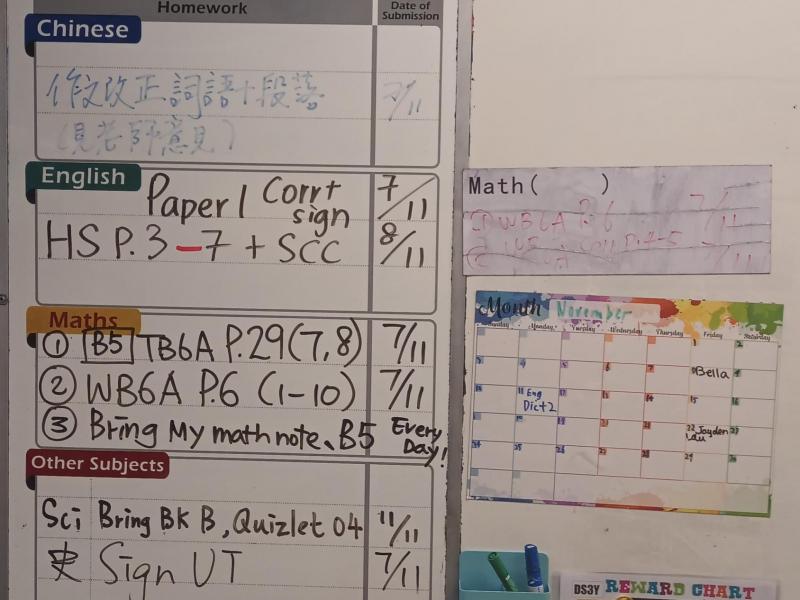 Homework
Date of Submission
Chinese
作文改正詞語+段落 7/11
(見老師意見)
English
Paper 1 Corr+ sign 7/11
HS P.3-7 + SCC 8/11
Maths
① B5 TB6A P.29(7,8) 7/11
② WB6A P.6 (1-10) 7/11
③ Bring My math note、B5 Every Day!
Other Subjects
Sci Bring BK B, Quizlet 04 11/11
Sign UT 7/11
Math( )
① WB6A P.6 7/11
Month November
Monday Tuesday Wednesday Thursday Friday Saturday
Bella
11 Eng Dict 2
22 Jayden Lau
DS3Y REWARD CHART